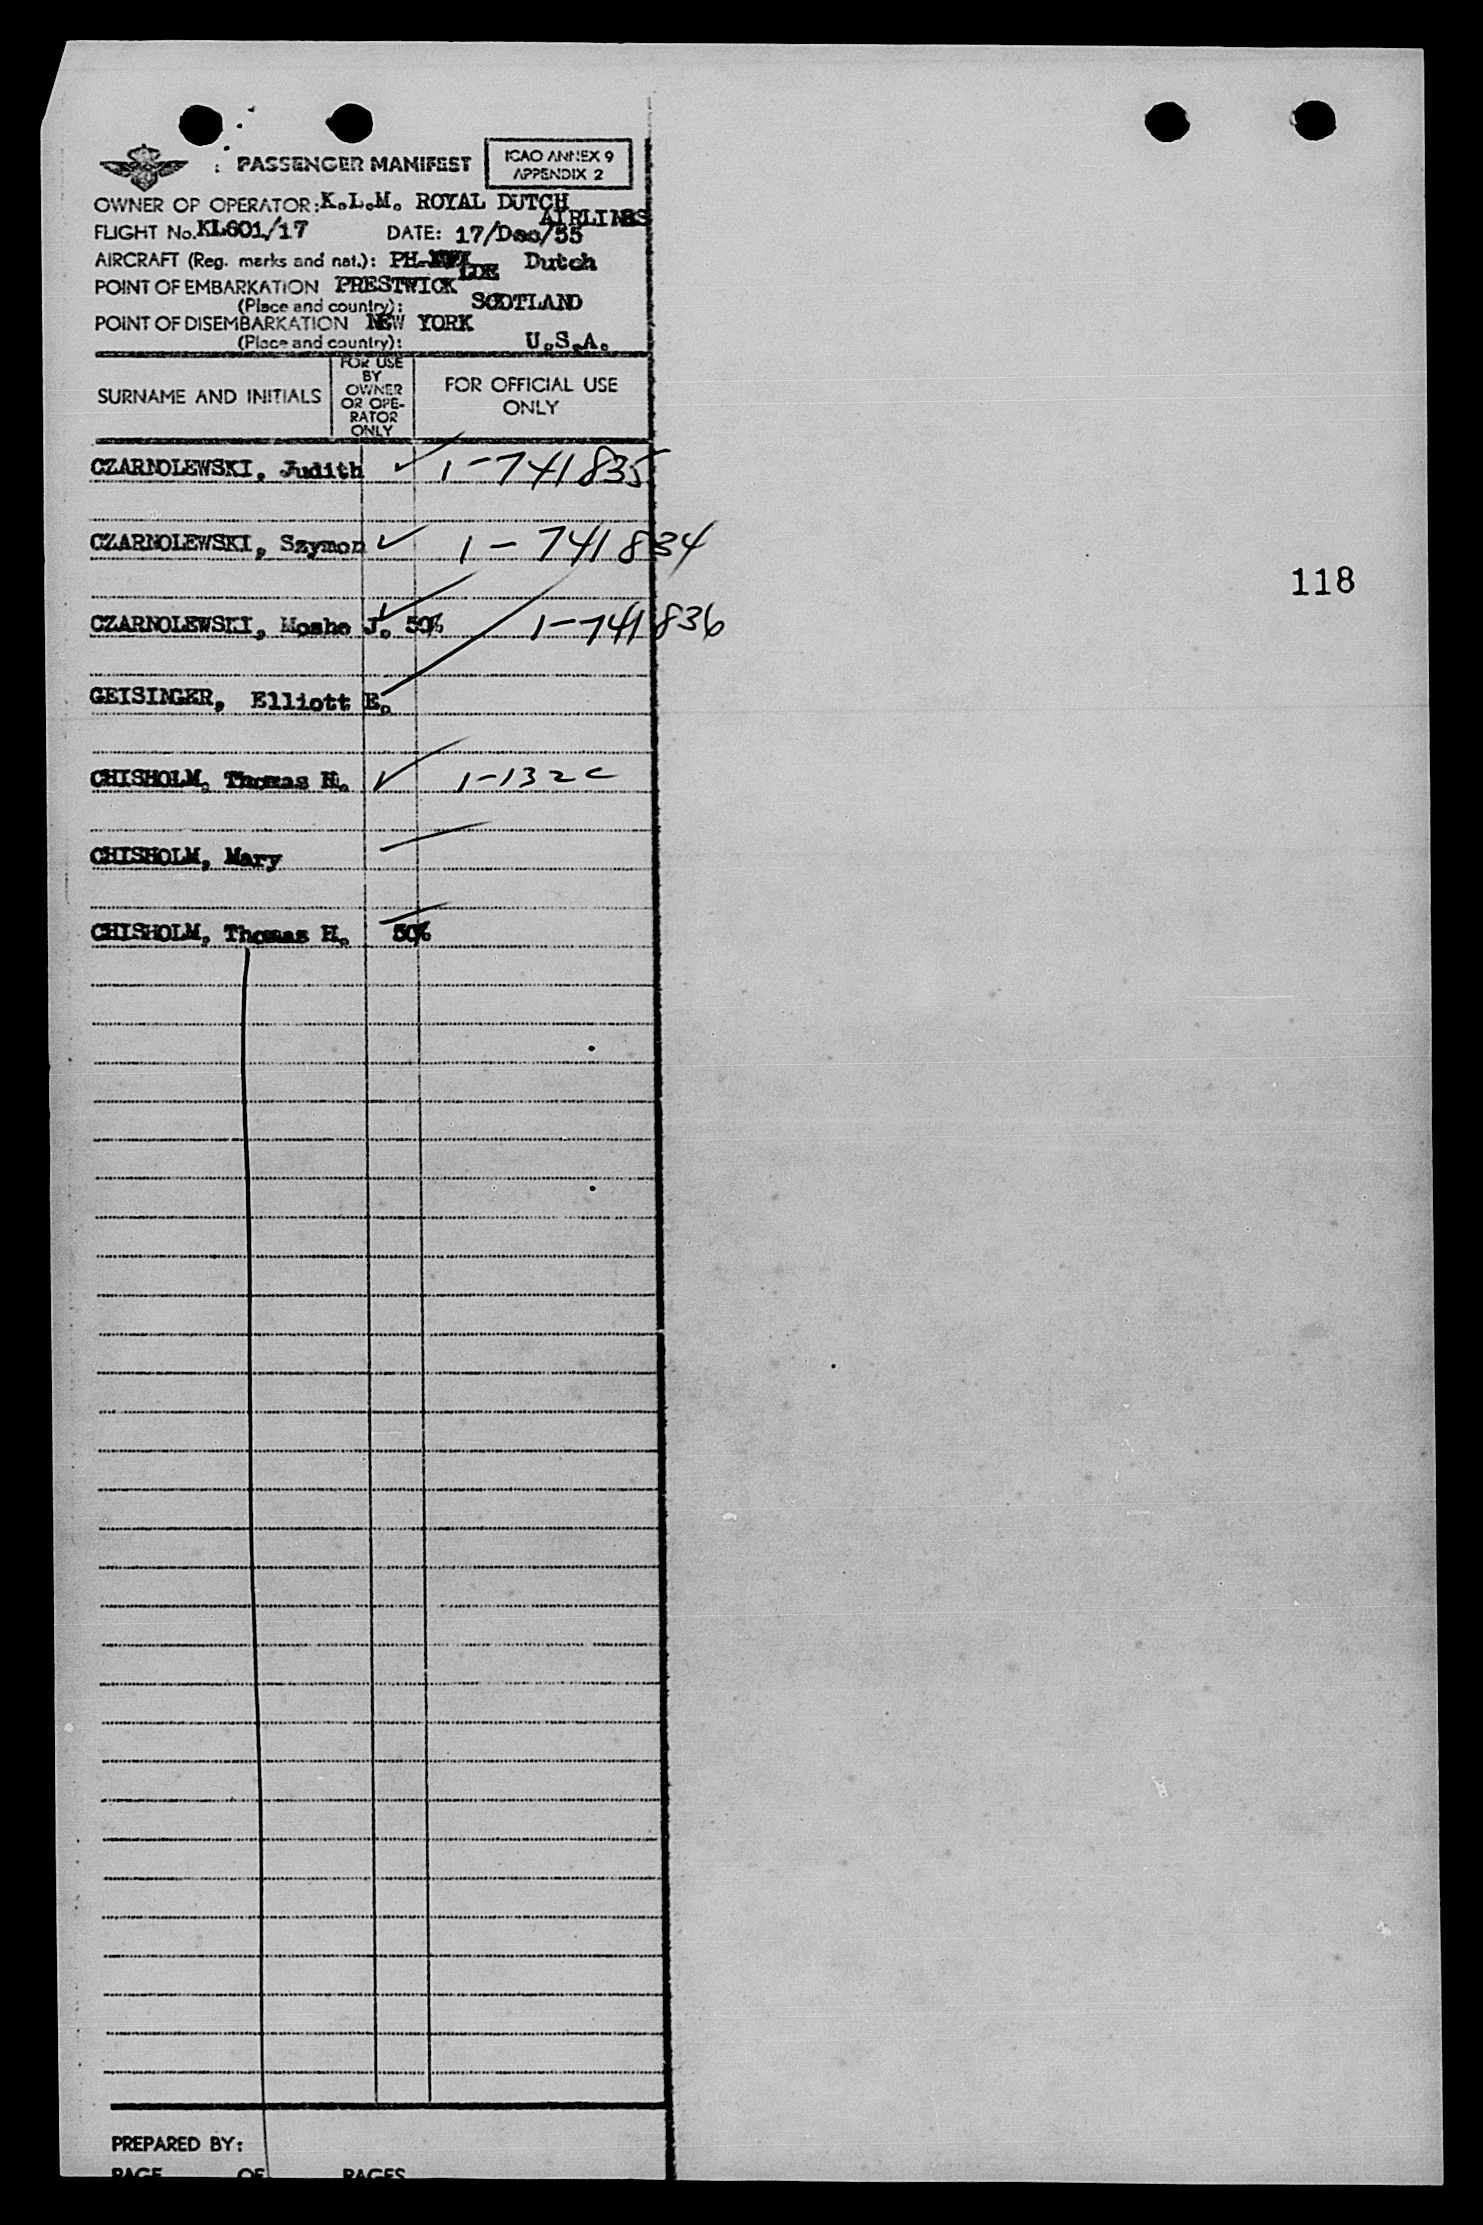 PASSENGER MANIFEST
ICAO ANNEX 9
APPENDIX 2
OWNER OP OPERATOR: K.L.M. ROYAL DUTCH
AIRLINES
FLIGHT No. KL601/17 DATE: 17/Dec/55
AIRCRAFT (Reg. marks and nat.): PH- LDE Dutch
POINT OF EMBARKATION PRESTWICK
(Place and country): SCOTLAND
POINT OF DISEMBARKATION NEW YORK
(Place and country): U.S.A.
SURNAME AND INITIALS
FOR USE
BY
OWNER
OR OPE-
RATOR
ONLY
FOR OFFICIAL USE
ONLY
CZARNOLEWSKI, Judith ✓ 1-741835
CZARNOLEWSKI, Szymon ✓ 1-741834
118
CZARNOLEWSKI, Moshe J. 50% 1-741836
GEISINGER, Elliott E.
CHISHOLM, Thomas N. ✓ 1-132c
CHISHOLM, Mary
CHISHOLM, Thomas H. 50%
PREPARED BY:
PAGE OF PAGES